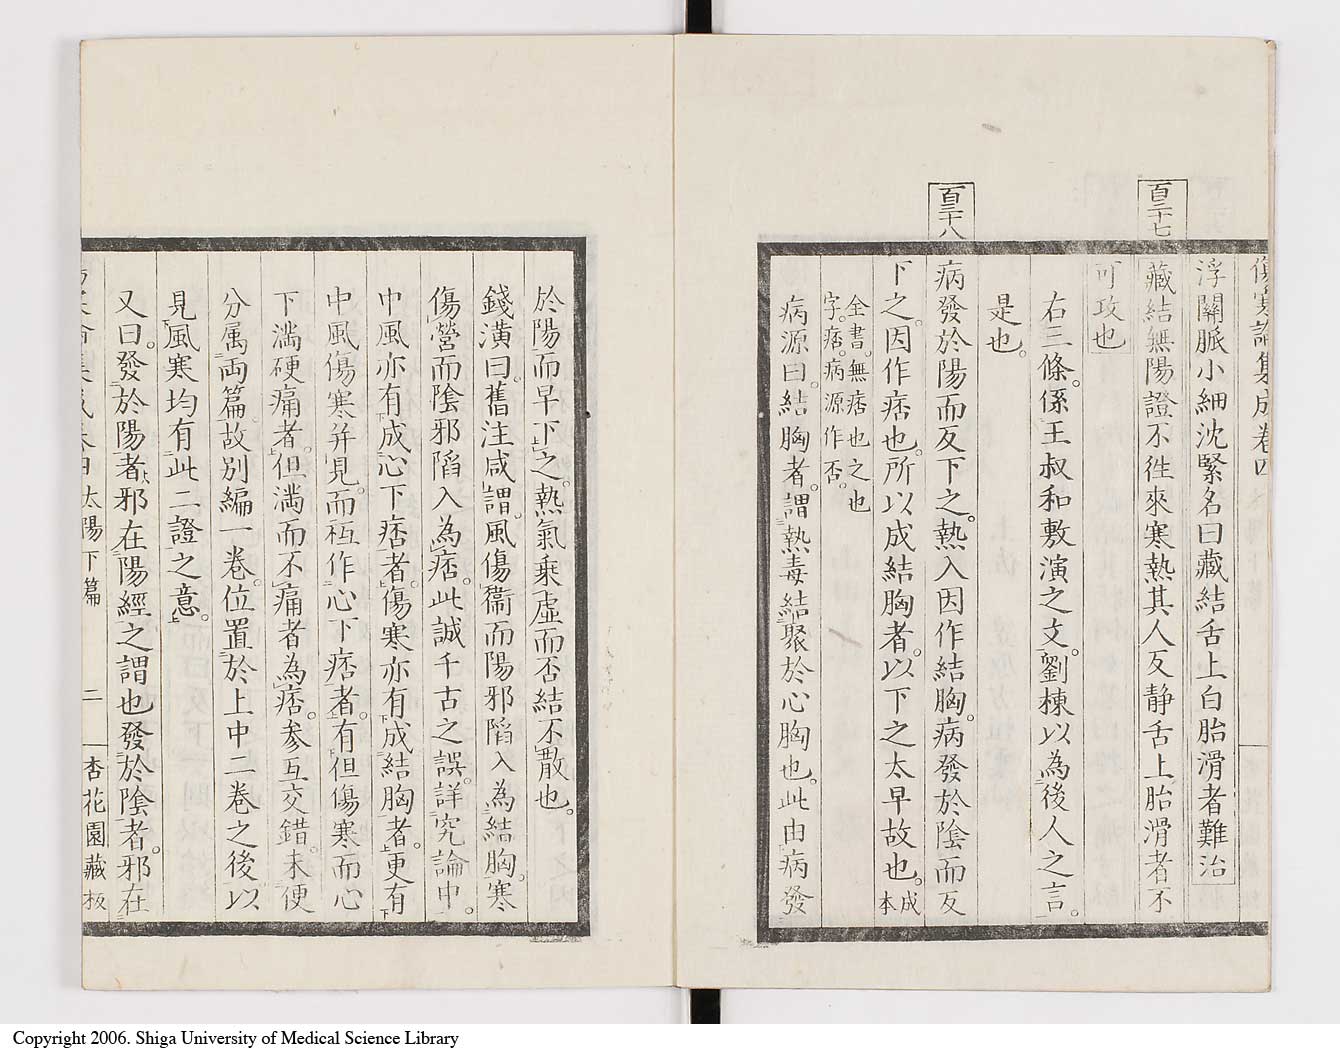 傷寒論集成卷四
浮關脈小細沈緊名曰藏結舌上白胎滑者難治
百三十七
藏結無陽證不徃來寒熱其人反静舌上胎滑者不
可攻也
右三條。係王叔和敷演之文。劉棟以為後人之言。
是也。
百三十八
病發於陽而反下之。熱入因作結胸。病發於陰而反
下之。因作痞也。所以成結胸者。以下之太早故也。成本
全書。無痞也之也
字。痞。病源作否。
病源曰。結胸者。謂熱毒結聚於心胸也。此由病發
於陽而早下之。熱氣乗虛而否結不散也。
錢潢曰。舊注咸謂。風傷衞而陽邪陷入為結胸。寒
傷營而陰邪陷入為痞。此誠千古之誤。詳究論中。
中風亦有成心下痞者。傷寒亦有成結胸者。更有
中風傷寒并見。而衹作心下痞者。有但傷寒而心
下滿硬痛者。但滿而不痛者為痞。参互交錯。未便
分属兩篇。故別編一卷。位置於上中二卷之後以
見風寒均有此二證之意。
又曰。發於陽者。邪在陽經之謂也發於陰者。邪在
太陽下篇 二 杏花園藏板
Copyright 2006. Shiga University of Medical Science Library